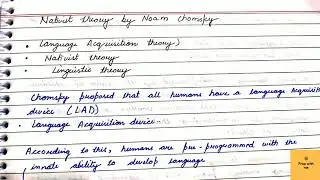 Nativist theory by Noam Chomsky
• Language Acquisition theory)
• Nativist theory
• Linguistic theory
Chomsky proposed that all humans have a language Acquisiti
device (LAD)
• Language Acquisition device
According to this, humans are pre-programmed with the
innate ability to develop language